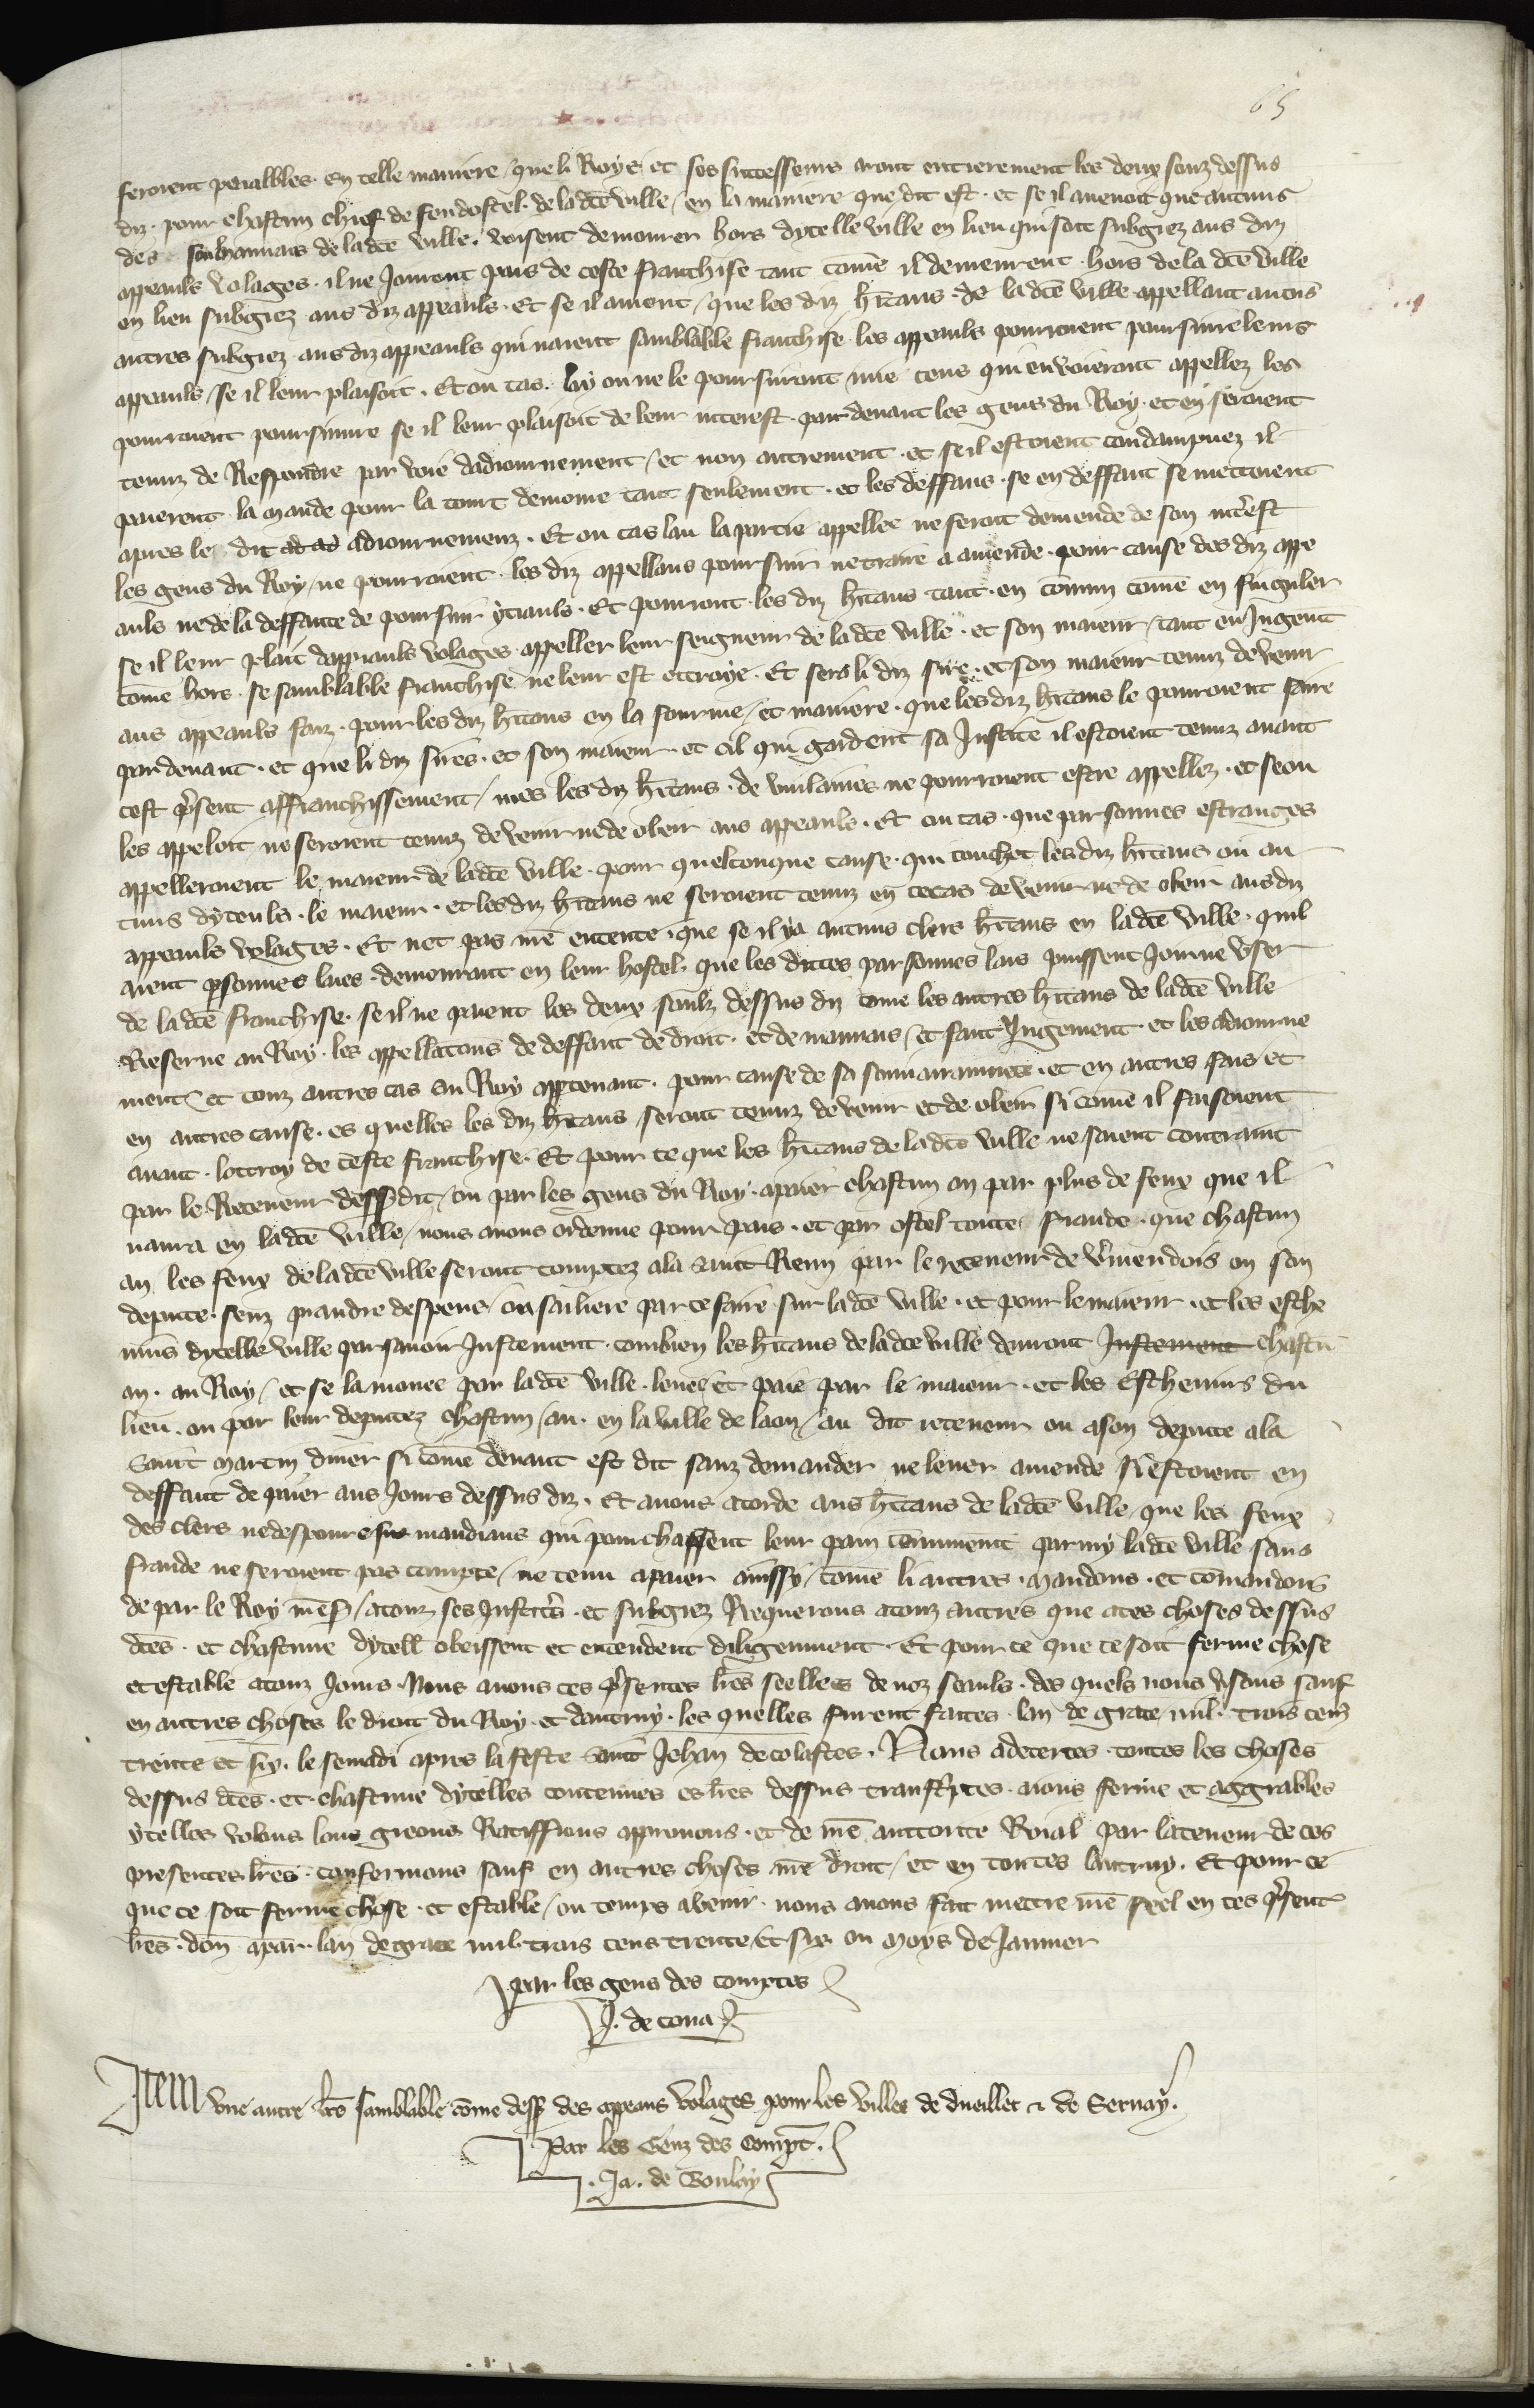 65
seroient peuablles. en telle maniere / que li Roys et ses successeurs aront entierement les deux souz dessus
diz. pour chascun chief de feu dostel. de ladte ville / en la maniere que dit est. et se il auenoit que aucuns
des souhaunais de ladte ville. voisent demourer hors dycelle ville en lieu qui soit subgiez aus diz
appeauls volages. il ne Joiront pais de ceste franchise tant come il demeurent. hors de la dte ville
en lieu subgiez aus diz appeauls. Et se il auient / que les diz hitans. de ladte ville appellant aucus
autres subgiez. aus diz appeauls qui naient samblable franchise. les appeauls pourroient poursuire leurs
appeauls / se il leur plaisoit. Et ou cas. la ou ne le poursuiront mie ceus qui en voieront appellez les
pourroient poursuiure se il leur plaisoit de leur interest. par deuant les gens du Roy. et en seroient
tenuz de Respondre par voie dadiournement / et non autrement. et se il estoient condampnez il
paierent. la mande pour la court demoine tant seulement. et les deffaus. se en deffaut se mettoient
apres le dit ad ad adiournemenz. Et ou cas lau la partie appellee ne feroit demende de son interest
les gens du Roy / ne pourroient. les diz appellans poursuir ne traire a amende. pour cause des diz appe
auls ne de la deffaute de poursuir yciauls. Et pouront. les diz hitans tant. en comun come en singuler
se il leur plait dappeauls volages appeller leur seigneur de ladte ville. et son maieur / tant en Jugent
come hors. se samblable franchise ne leur est ottroye. Et sera li diz sire. et son maieur tenuz de venir
aus appeauls faiz. pour les diz hitans en la fourme / et maniere. que les diz hitans le pouroient faire
par deuant. et que li diz sires. et son maieur. et cil qui gardent sa Justice il estoient tenuz auant
cest psent affranchissement / mes les diz hitans. de vuilaines ne pourroient estre appellez. et se on
les appeloit ne seroient tenuz de venir ne de obeir aus appeauls. Et ou cas. que parsonnes estranges
appelleroient le maieur de ladte ville. pour quelconque cause. qui touchet les diz hitans ou au
cuns dyceuls. le maieur. et les diz hitans ne seroient tenuz en ce cas de venir ne de obeir aus diz
appeauls volages. Et net pas me entente. que se il ya aucuns clers hitans en ladte ville. quil
aient psonnes laies. demourant en leur hostel. que les dittes parsonnes lais puissent Joir ne vser
de ladte franchise. se il ne paient les deux soulz dessus diz come les autres hitans de ladte ville
Reserue au Roy. les appellatons de deffaut de droit. et de mauuais / et faut Jugement. et les adiourne
ment / et touz autres cas au Roy apptenant. pour cause de sa souuairainnete. et en autres fais et
en autres cause. es quelles les diz hitans seront tenuz de venir et de obeir si come il faisoient
auant. lottroy de ceste franchise. Et pour ce que les hitans de ladte ville ne soient contraint
par le Receueur dessdit / ou par les gens du Roy. apaier chascun an par plus de feux que il
naura en ladte ville / nous auons ordenne pour pais. et par ostel toute fraude. que chascun
an / les feux de ladte ville seront comptez ala saint Remy par le receueur de vmendois ou son
depute. senz prandre despens / ou sailiere par ce faire sur ladte ville. et pour le maieur. et les esche
uins dycelle ville par sauoir Justement. combien les hitans de ladte ville deuront Justement chascu
an. au Roy / et se la monee par ladte ville. leuee et paie par le maieur. et les Escheuins du
lieu. ou par leur deputez chascun / an. en la ville de laon / au dit receueur ou ason depute ala
saint martin diuer si come deuant est dit sanz demander ne leuer amende silestoient en
deffaut de paier aus Jours dessus diz. Et auons acorde aus hitans de ladte ville / que les feux
des clers ne despoureus mandians qui pourchassent leur pain communent parmy ladte ville sans
fraude ne seroient pas compte / ne tenu apaier ainssy / come li autres. Mandons. et comandons
de par le Roy mess / atouz ses Justicrs. et subgiez Requerons atouz autres que aces choses dessus
dtes. et chascune dycell obeissent et entendent diligenment. Et pour ce que ce soit ferme chose
et estable atouz Jours. Nous auons ces psentes lres seellees de noz seauls. des quels nous vsons sauf
en autres choses le droit du Roy. et dautruy. les quelles furent faites. lan de grace mil. trois cens
trente et siy. le semadi apres la feste saint Jehan decolastes. Nous adecertes. toutes les choses
dessus dtes. et chascune dycelles contenues es lres dessus transcriptes. aions ferme et aggrables
ycelles volons loons greons Ratiffions approuons. et de me auctorite Roial par la teneur de ces
presentes lres. confermons sauf en autres choses me droit / et en toutes lautruy. Et pour ce
que ce soit ferme chose. et estable / ou temps auenir. nous auons fait mettre me seel en ces psent
lres. don apar. lan de grace mil trois cens trente et syx ou moys de Januier
par les gens des comptes
P. de cona
Item vne autre lre samblable come dess des appeaus volages pour les villes de dueillet & de Seruay.
Par les Genz des Compt.
Ja. de Boulay